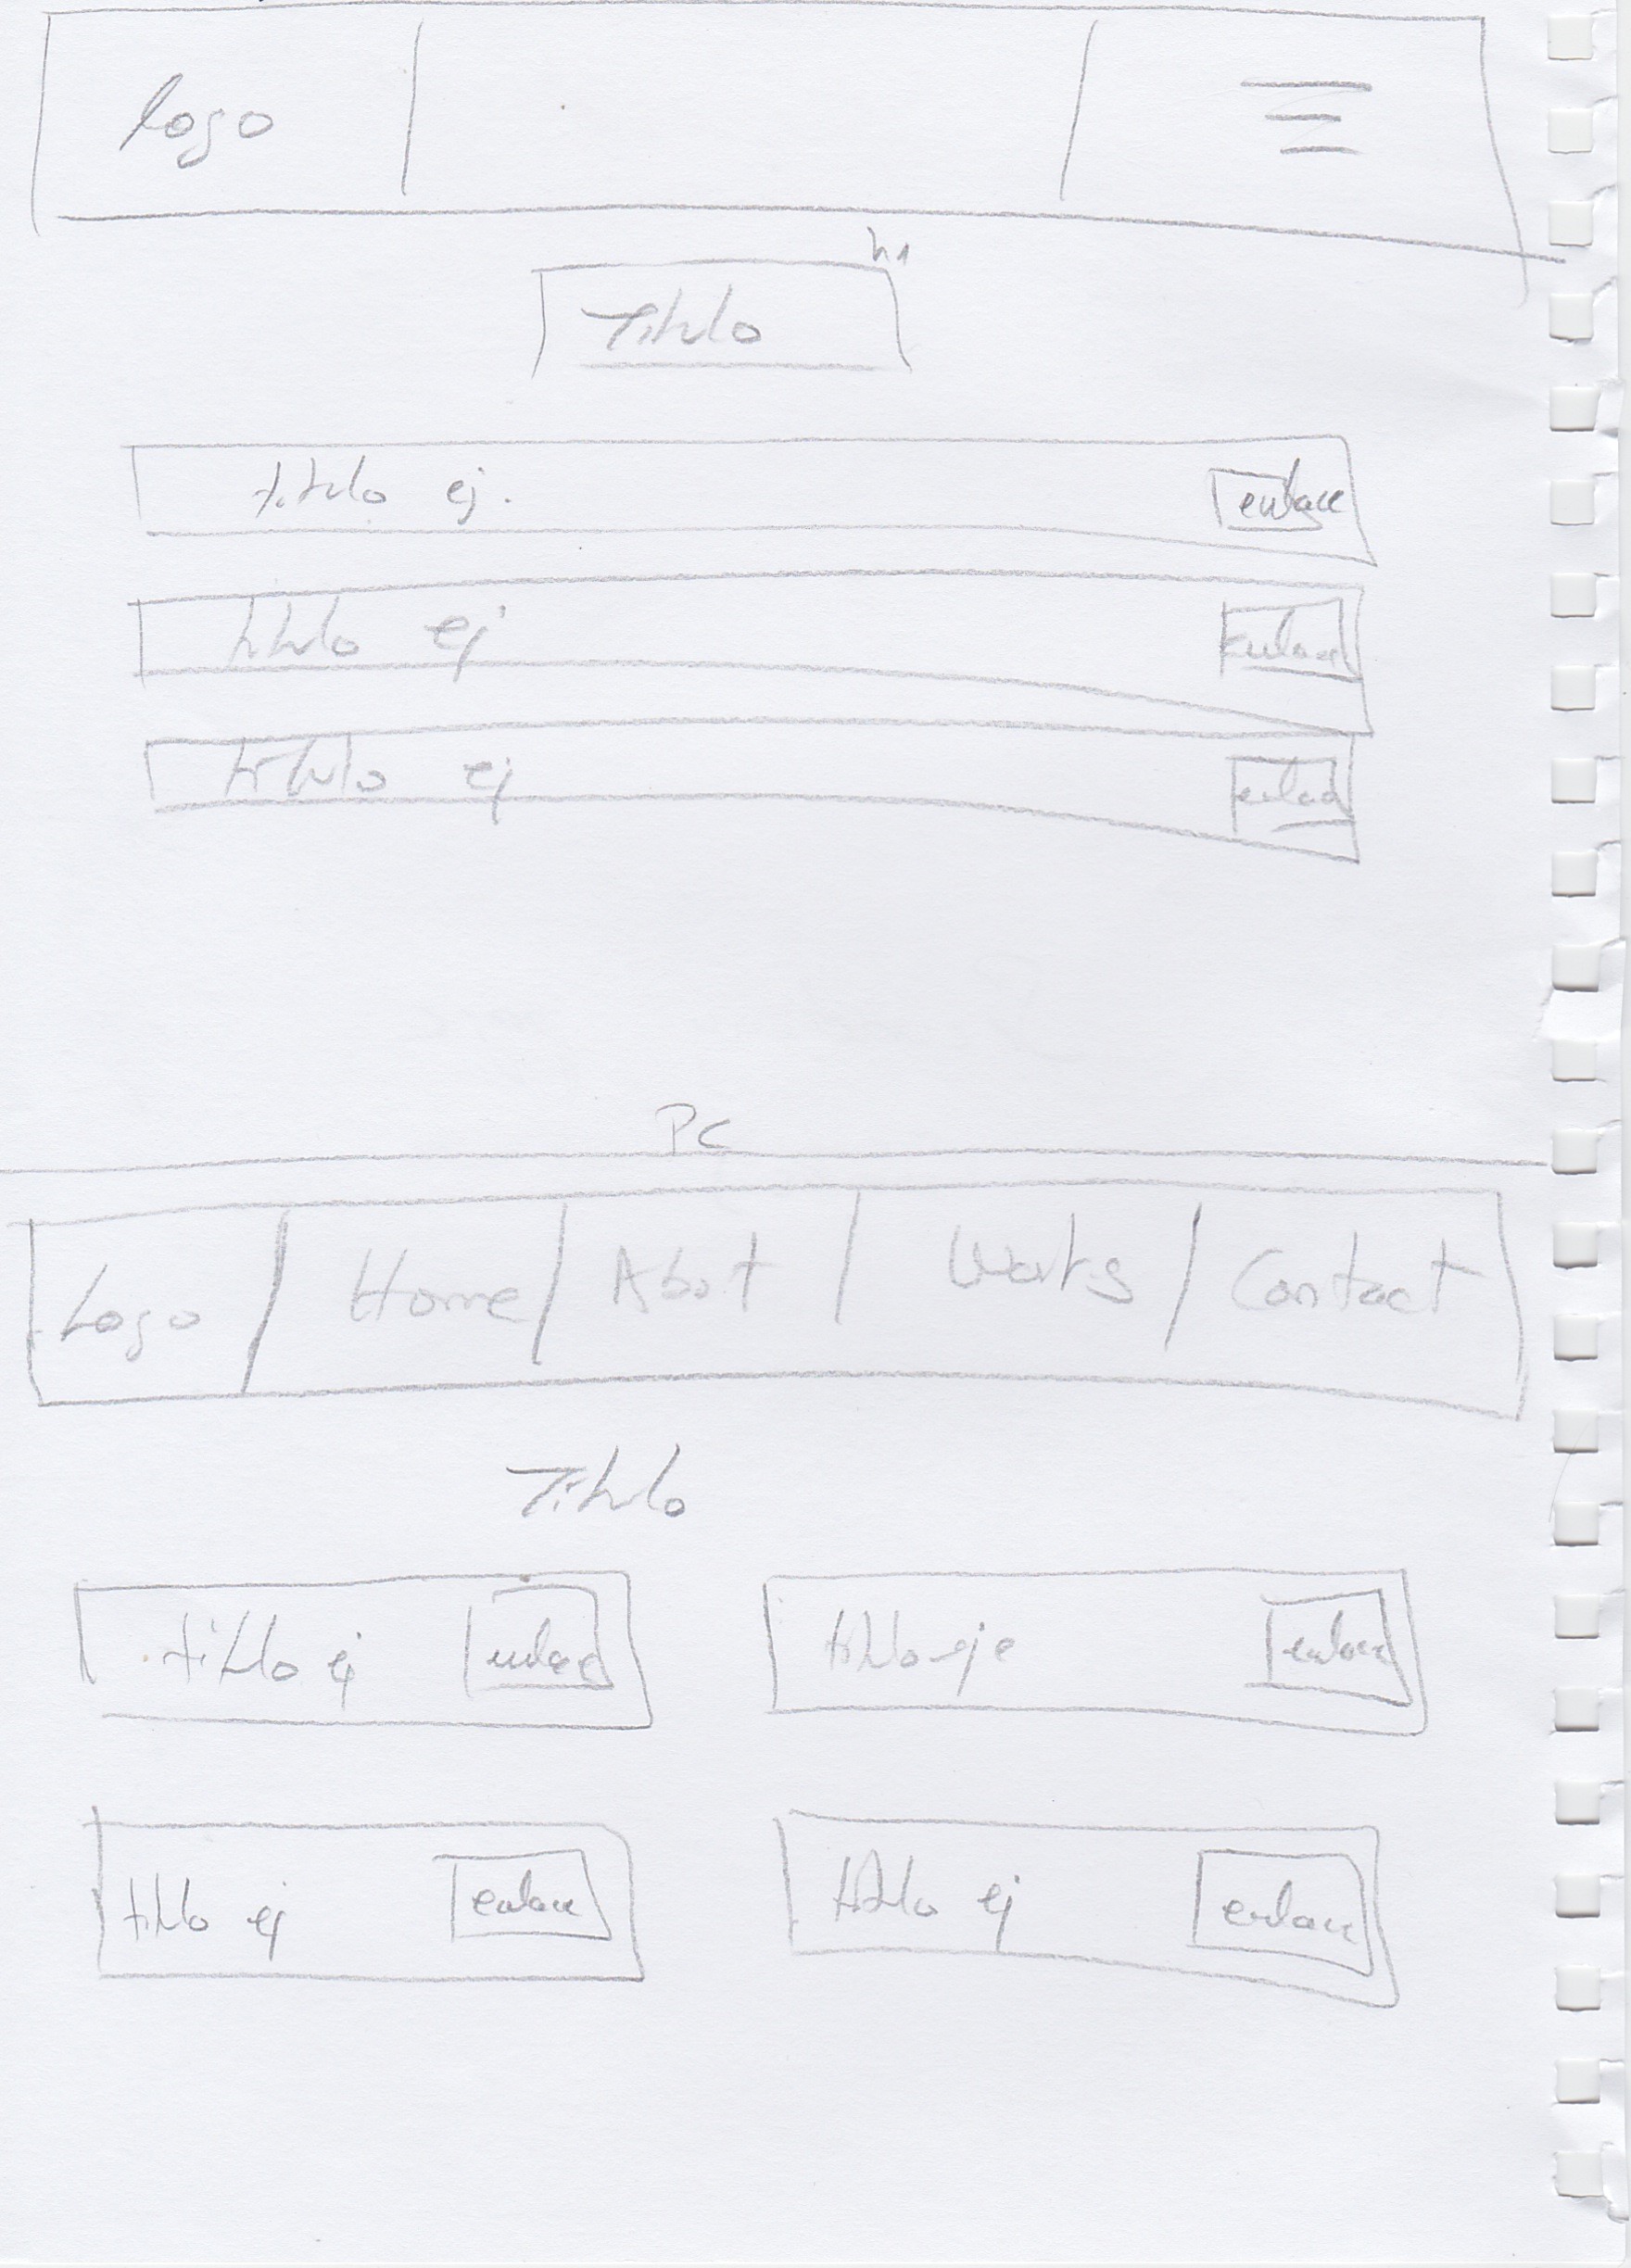 logo
h1
Titulo
titulo ej.
enlace
titulo ej
enlace
titulo ej
enlace
PC
Logo Home Abot Works Contact
Titulo
titulo ej
enlace
titulo eje
enlace
titulo ej
enlace
titulo ej
enlace